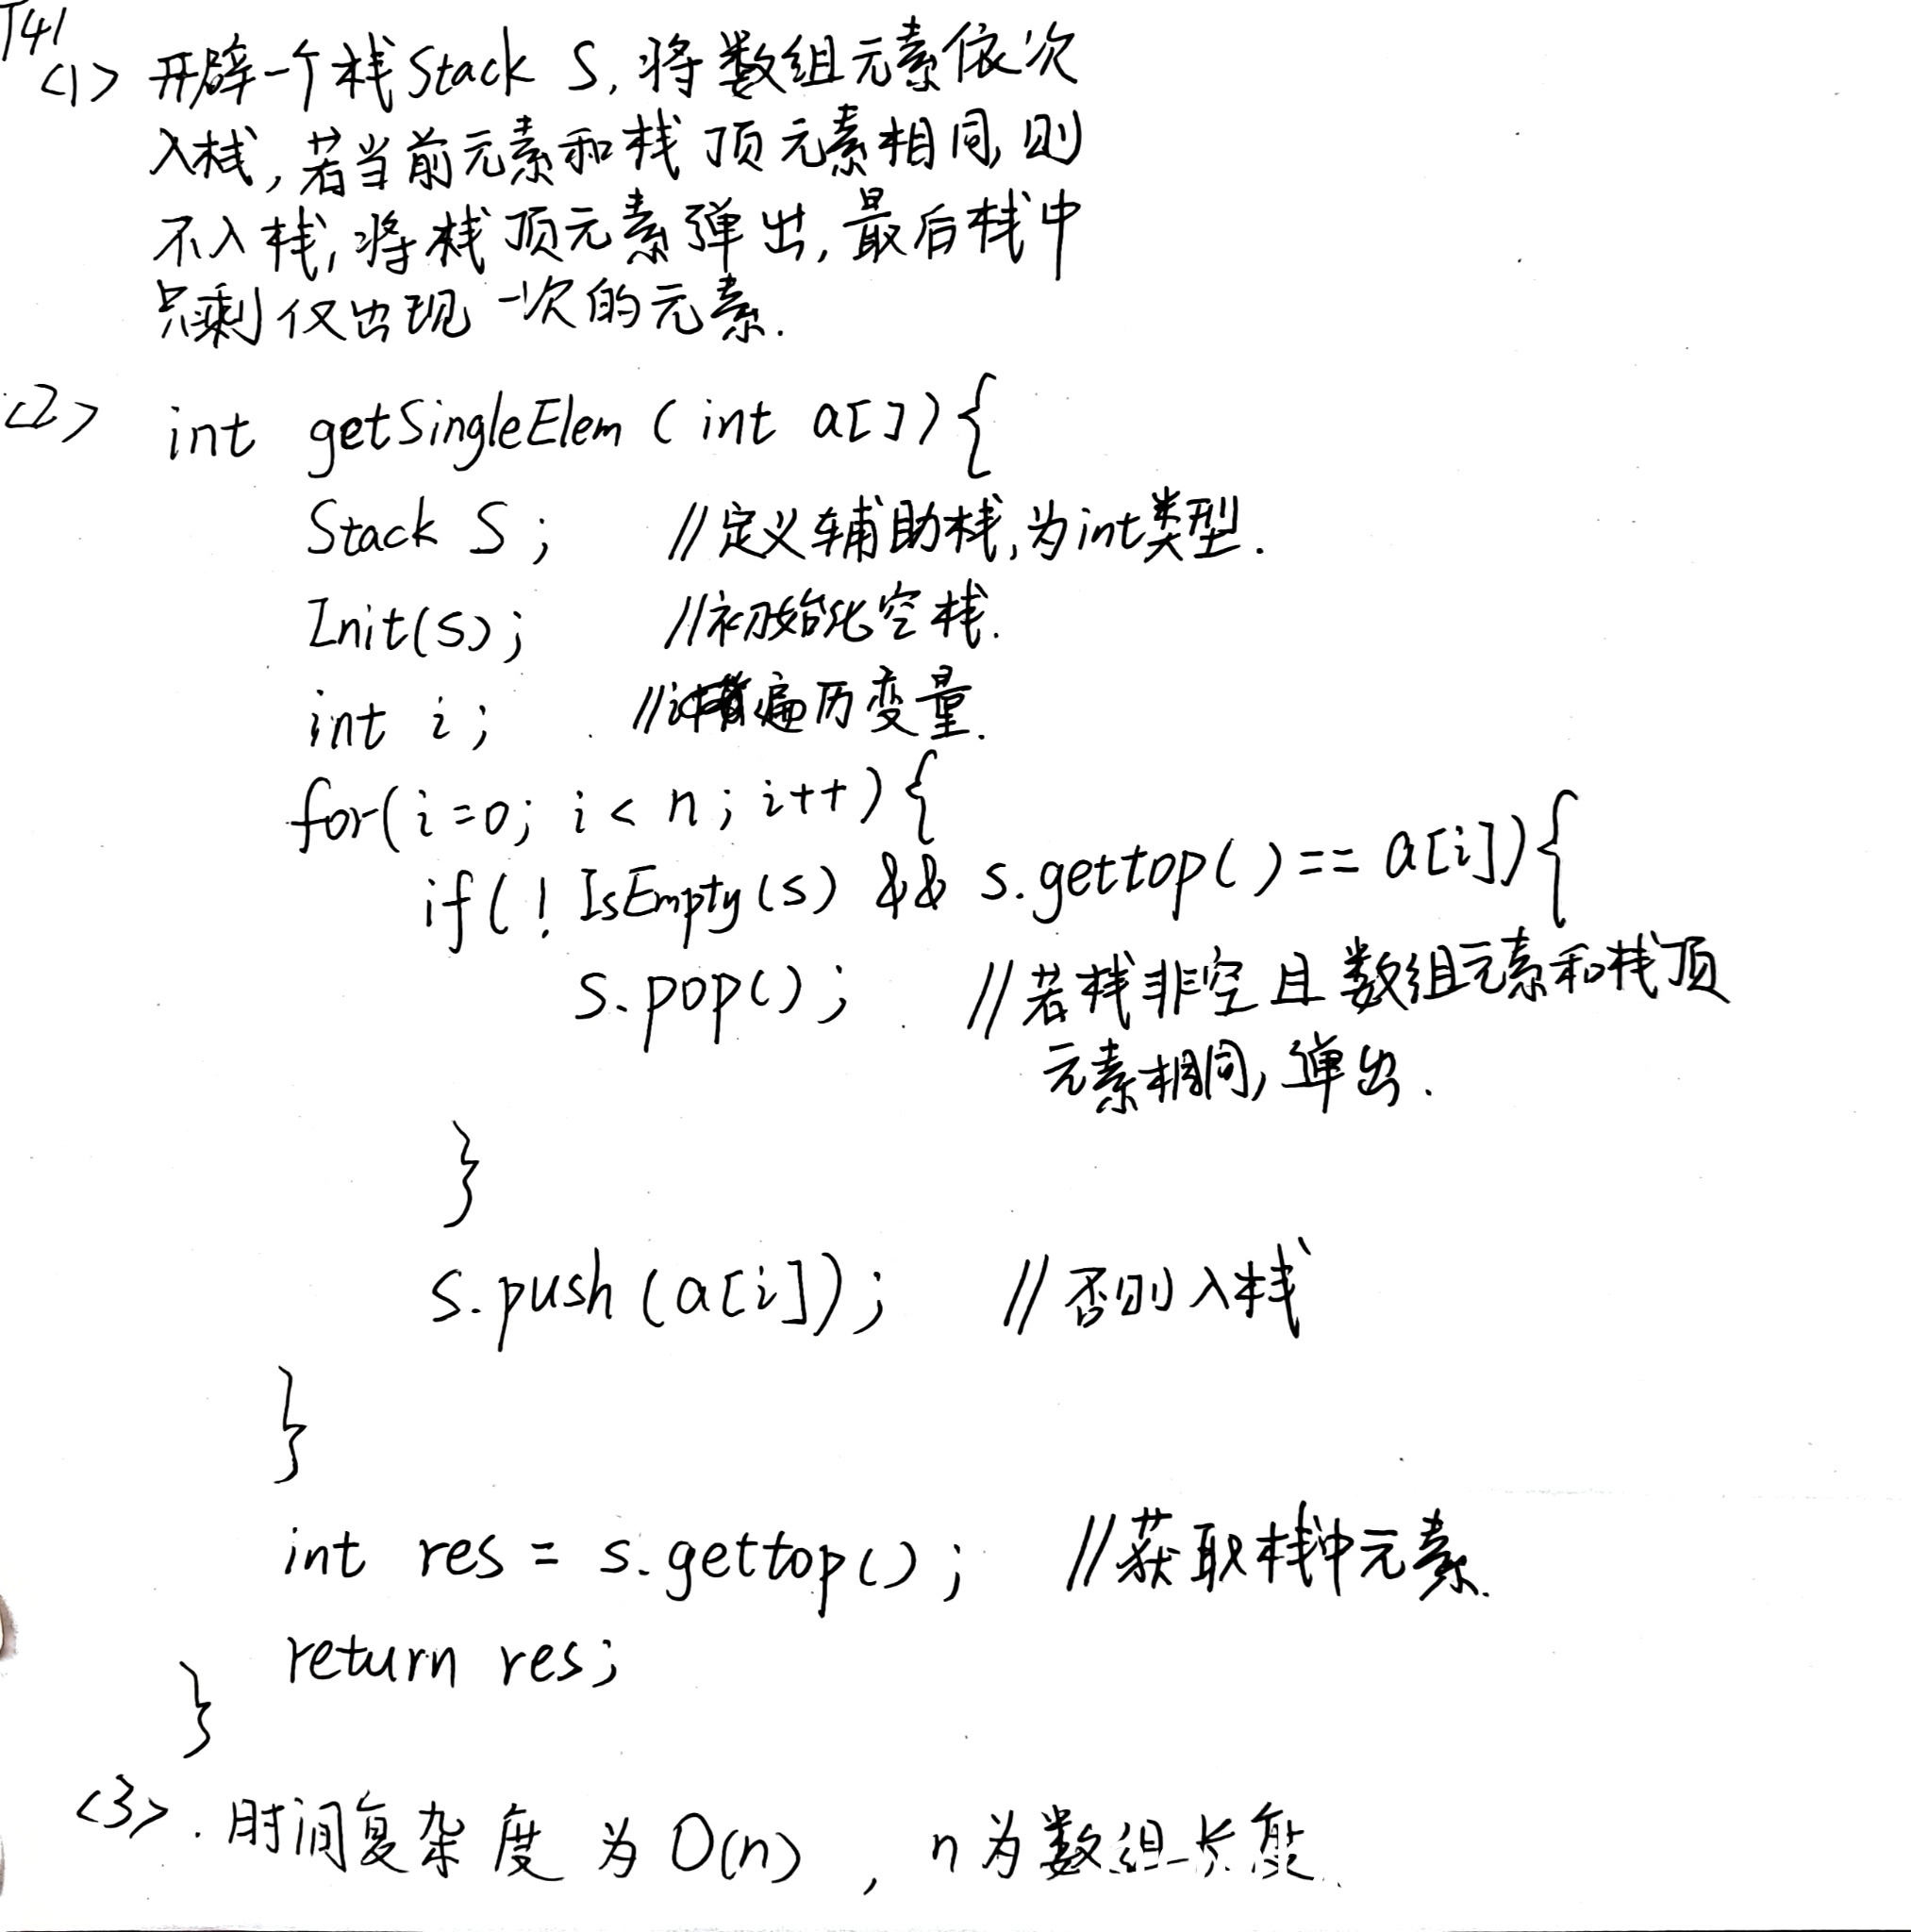 T41
<1> 开辟一个栈Stack S, 将数组元素依次
入栈, 若当前元素和栈顶元素相同, 则
不入栈, 将栈顶元素弹出, 最后栈中
只剩仅出现一次的元素.
<2> int getSingleElem ( int a[]) {
Stack S; //定义辅助栈, 为int类型.
Init(S); //初始化空栈.
int i; //遍历变量.
for(i=0; i< n; i++) {
if( ! IsEmpty(s) && s.gettop() == a[i]) {
s.pop(); //若栈非空且数组元素和栈顶
元素相同, 弹出.
}
s.push (a[i]); //否则入栈
}
int res = s.gettop(); //获取栈中元素.
return res;
}
<3>. 时间复杂度为O(n), n为数组长度.